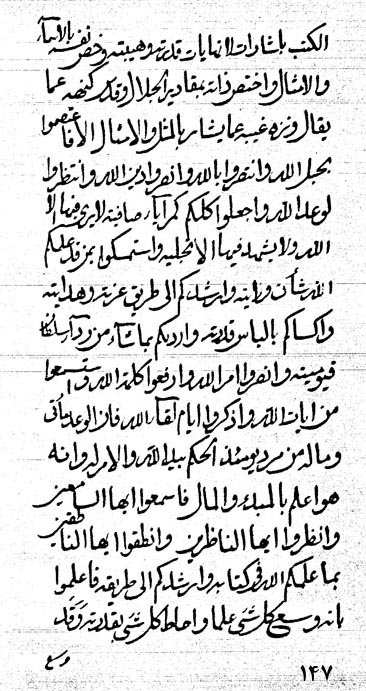 الكتب باشارات انهايات قدرته وهيبته وخص نفسه بالاسمآء
والامثال واختص ذاته بمقادير الجلال وقدس كنهه عما
يقال ونزه غيبه عما يشار بالمثل والامثال الا فاعتصموا
بحبل الله وانصروا بالله وانصروا دين الله وانتظروا
لوعد الله واجعلوا كلكم كمرايا صافية لايرى فيها الا
الله ولا يشهد فيها الا تجليه واستمسكوا بمن قد علمكم
الله شأن ورايته وارشدكم الى طريق عزته وهدايته
واكساكم بالباس قدرته وارديكم بما شآء من ردآء سلطان
قيوميته وانصروا امر الله وارفعوا كلمة الله واستمعوا
من ايات الله واذكروا ايام لقآء الله فان الوعد يأتى
وماله من مرد يومئذ الحكم بيد الله والامر له وانه
هو اعلم بالمبدء والمال فاسمعوا ايها السامعين
وانظروا ايها الناظرين وانطقوا ايها الناطقين
بما علمكم الله فى كتابه وارشدكم الى طريقه فاعلموا
بانه وسع كل شى علما واحاط كل شى بقدرته وقد
وسع
١٤٧